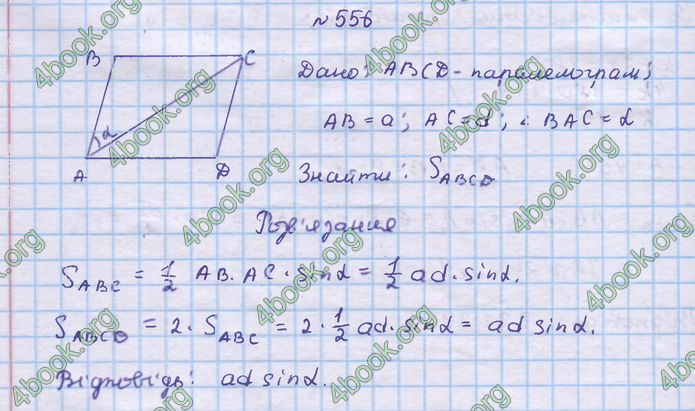 № 556
B C
Дано: ABCD - паралелограм;
AB = a; AC = d; ∠BAC = α
α
A D
Знайти: S_ABCD
Розв'язання
S_ABC = 1/2 AB · AC · sinα = 1/2 ad · sinα.
S_ABCD = 2 · S_ABC = 2 · 1/2 ad · sinα = ad sinα.
Відповідь: ad sinα.
4book.org
4book.org
4book.org
4book.org
4book.org
4book.org
4book.org
4book.org
4book.org
4book.org
4book.org
4book.org